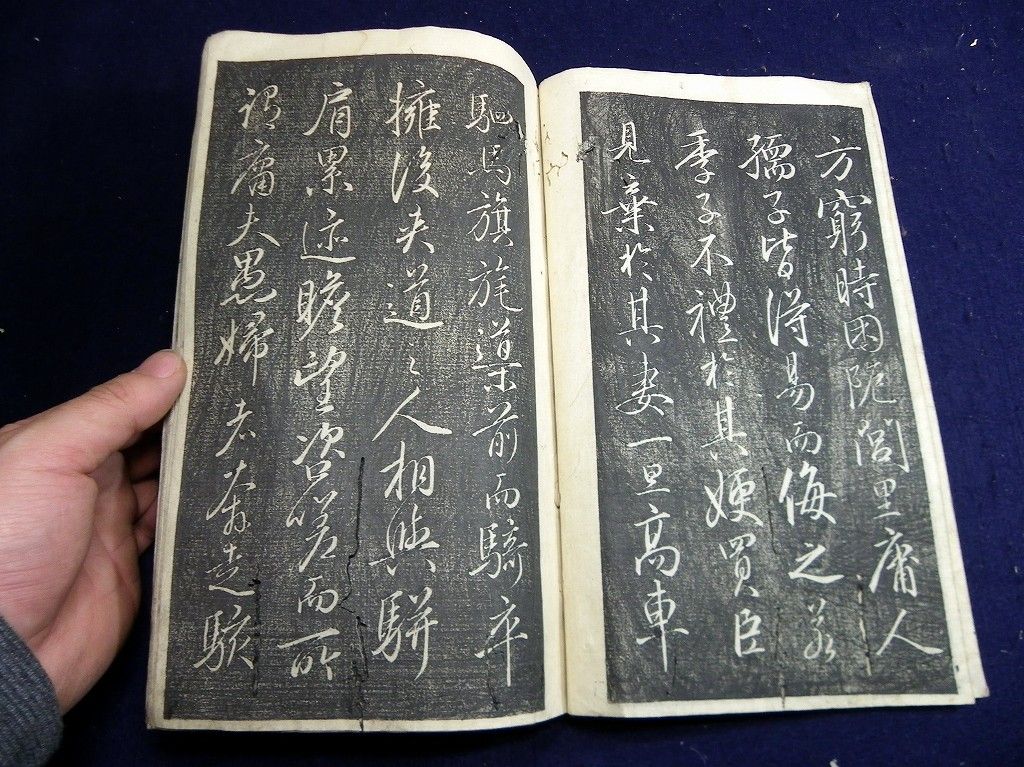 方窮時困阨閭里庸人
孺子皆得易而侮之若
季子不禮於其嫂買臣
見棄於其妻一旦高車
駟馬旗旄導前而騎卒
擁後夾道之人相與駢
肩累迹瞻望咨嗟而所
謂庸夫愚婦者奔走駭